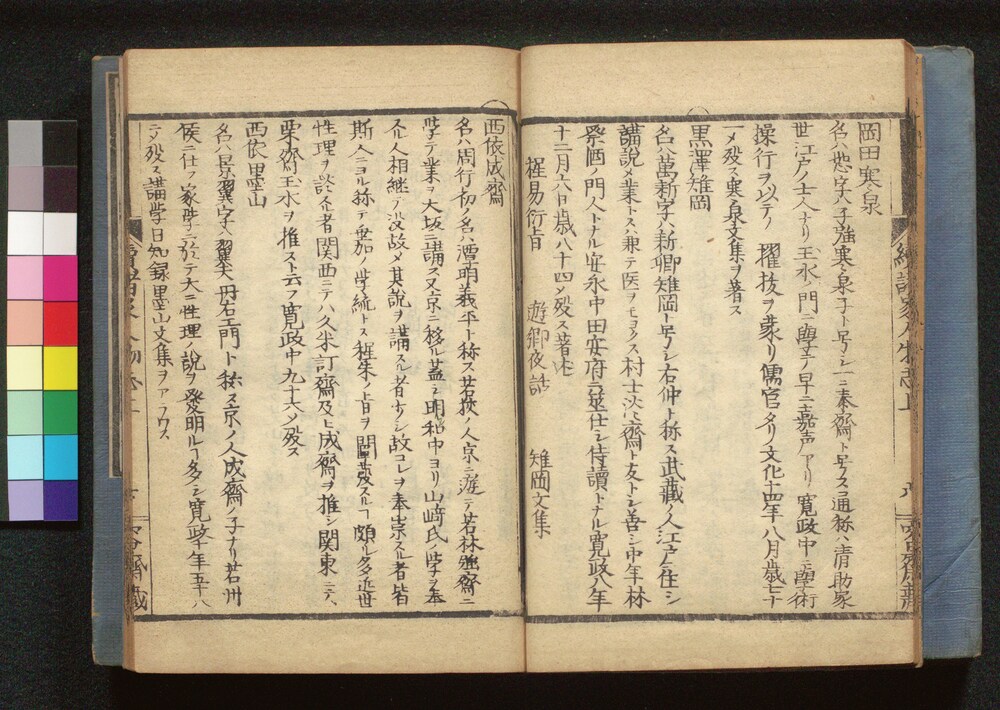 岡田寒泉
名ハ恕字ハ子強寒泉子ト号シ一ニ泰斎ト号ス通称ハ清助家
世江戸ノ士人ナリ玉水ノ門ニ學ヒ早ニ嘉声アリ寛政中ニ學術
操行ヲ以テノ擢抜ヲ蒙リ儒官タリ文化十四年八月歳七十
一メ殁ス寒泉文集ヲ著ス
黒澤雉岡
名ハ萬新字ハ新卿雉岡ト号シ右仲ト称ス武蔵ノ人江戸ニ住シ
講説メ業トス兼テ医ヲモヨクス村士淡斎ト友トシ善シ中年林
祭酒ノ門人トナル安永中田安府ニ筮仕シ侍讀トナル寛政八年
十二月六日歳八十四メ殁ス著述
程易衍旨
遊郷夜話
雉岡文集
西依成齋
名ハ周行初ノ名ハ潭明義平ト称ス若狭ノ人京ニ遊テ若林強齋ニ
学テ業ヲ大坂ニ講ス又京ニ移ル蓋シ明和中ヨリ山﨑氏ノ学ヲ奉
スル人相継テ没故メ其説ヲ講スル者少シ故コレヲ奉崇スル者皆
斯人ニヨル称テ垂加ノ学統トス程朱ノ旨ヲ開發スルヿ頗ル多近世
性理ヲ談スル者関西ニテハ久米訂齋及ヒ成齋ヲ推シ関東ニテハ
栗齋玉水ヲ推スト云フ寛政中九十六メ殁ス
西依墨山
名ハ景翼字ハ翼夫丹右エ門ト称ス京ノ人成齋ノ子ナリ若州
侯ニ仕フ家学ニ於テ大ニ性理ノ説ヲ發明ルヿ多シ寛政十年五十八
ニメ殁ス講学日知録墨山文集ヲアラワス
續諸家人物志上